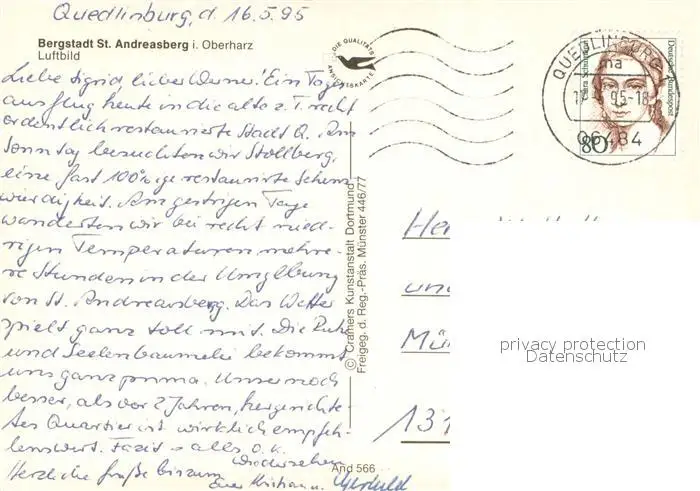 Quedlinburg, d. 16.5.95
Bergstadt St. Andreasberg i. Oberharz
Luftbild
Liebe Sigrid lieber Werner! Ein Tages
ausflug heute in die alte z.T. recht
ordentlich restaurierte Stadt Q. Am
Sonntag besuchten wir Stollberg,
eine fast 100%ige restaurierte Sehens
würdigkeit. Am gestrigen Tage
wanderten wir bei recht nied-
rigen Temperaturen mehre-
re Stunden in der Umgebung
von St. Andreasberg. Das Wetter
spielt ganz toll mit. Die Ruhe
und Seelenbaumelei bekommt
uns ganz prima. Unser noch
besser, als vor 2 Jahren, hergerichte-
tes Quartier ist wirklich empfeh-
lenswert. Fazit = alles o.k.
Herzliche Grüße bis zum Wiedersehen
Eure Kristian u.
And 566
© Cramers Kunstanstalt Dortmund
Freigeg. d. Reg.-Präs. Münster 446/77
DIE QUALITÄTS
ANSICHTSKARTE
QUEDLINBURG
ma
95-18
06484
Clara Schumann
Deutsche Bundespost
80
Her
und
Mü
131
privacy protection
Datenschutz